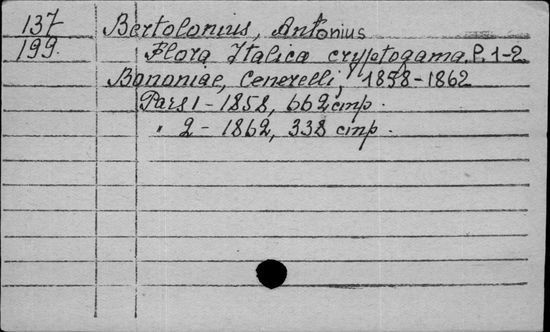 137 Bertolonius, Antonius
199. Flora Italica cryptogama. P. 1-2
Bononiae, Cenerelli, 1858-1862
Pars 1 - 1858, 662 стр.
" 2 - 1862, 338 стр.